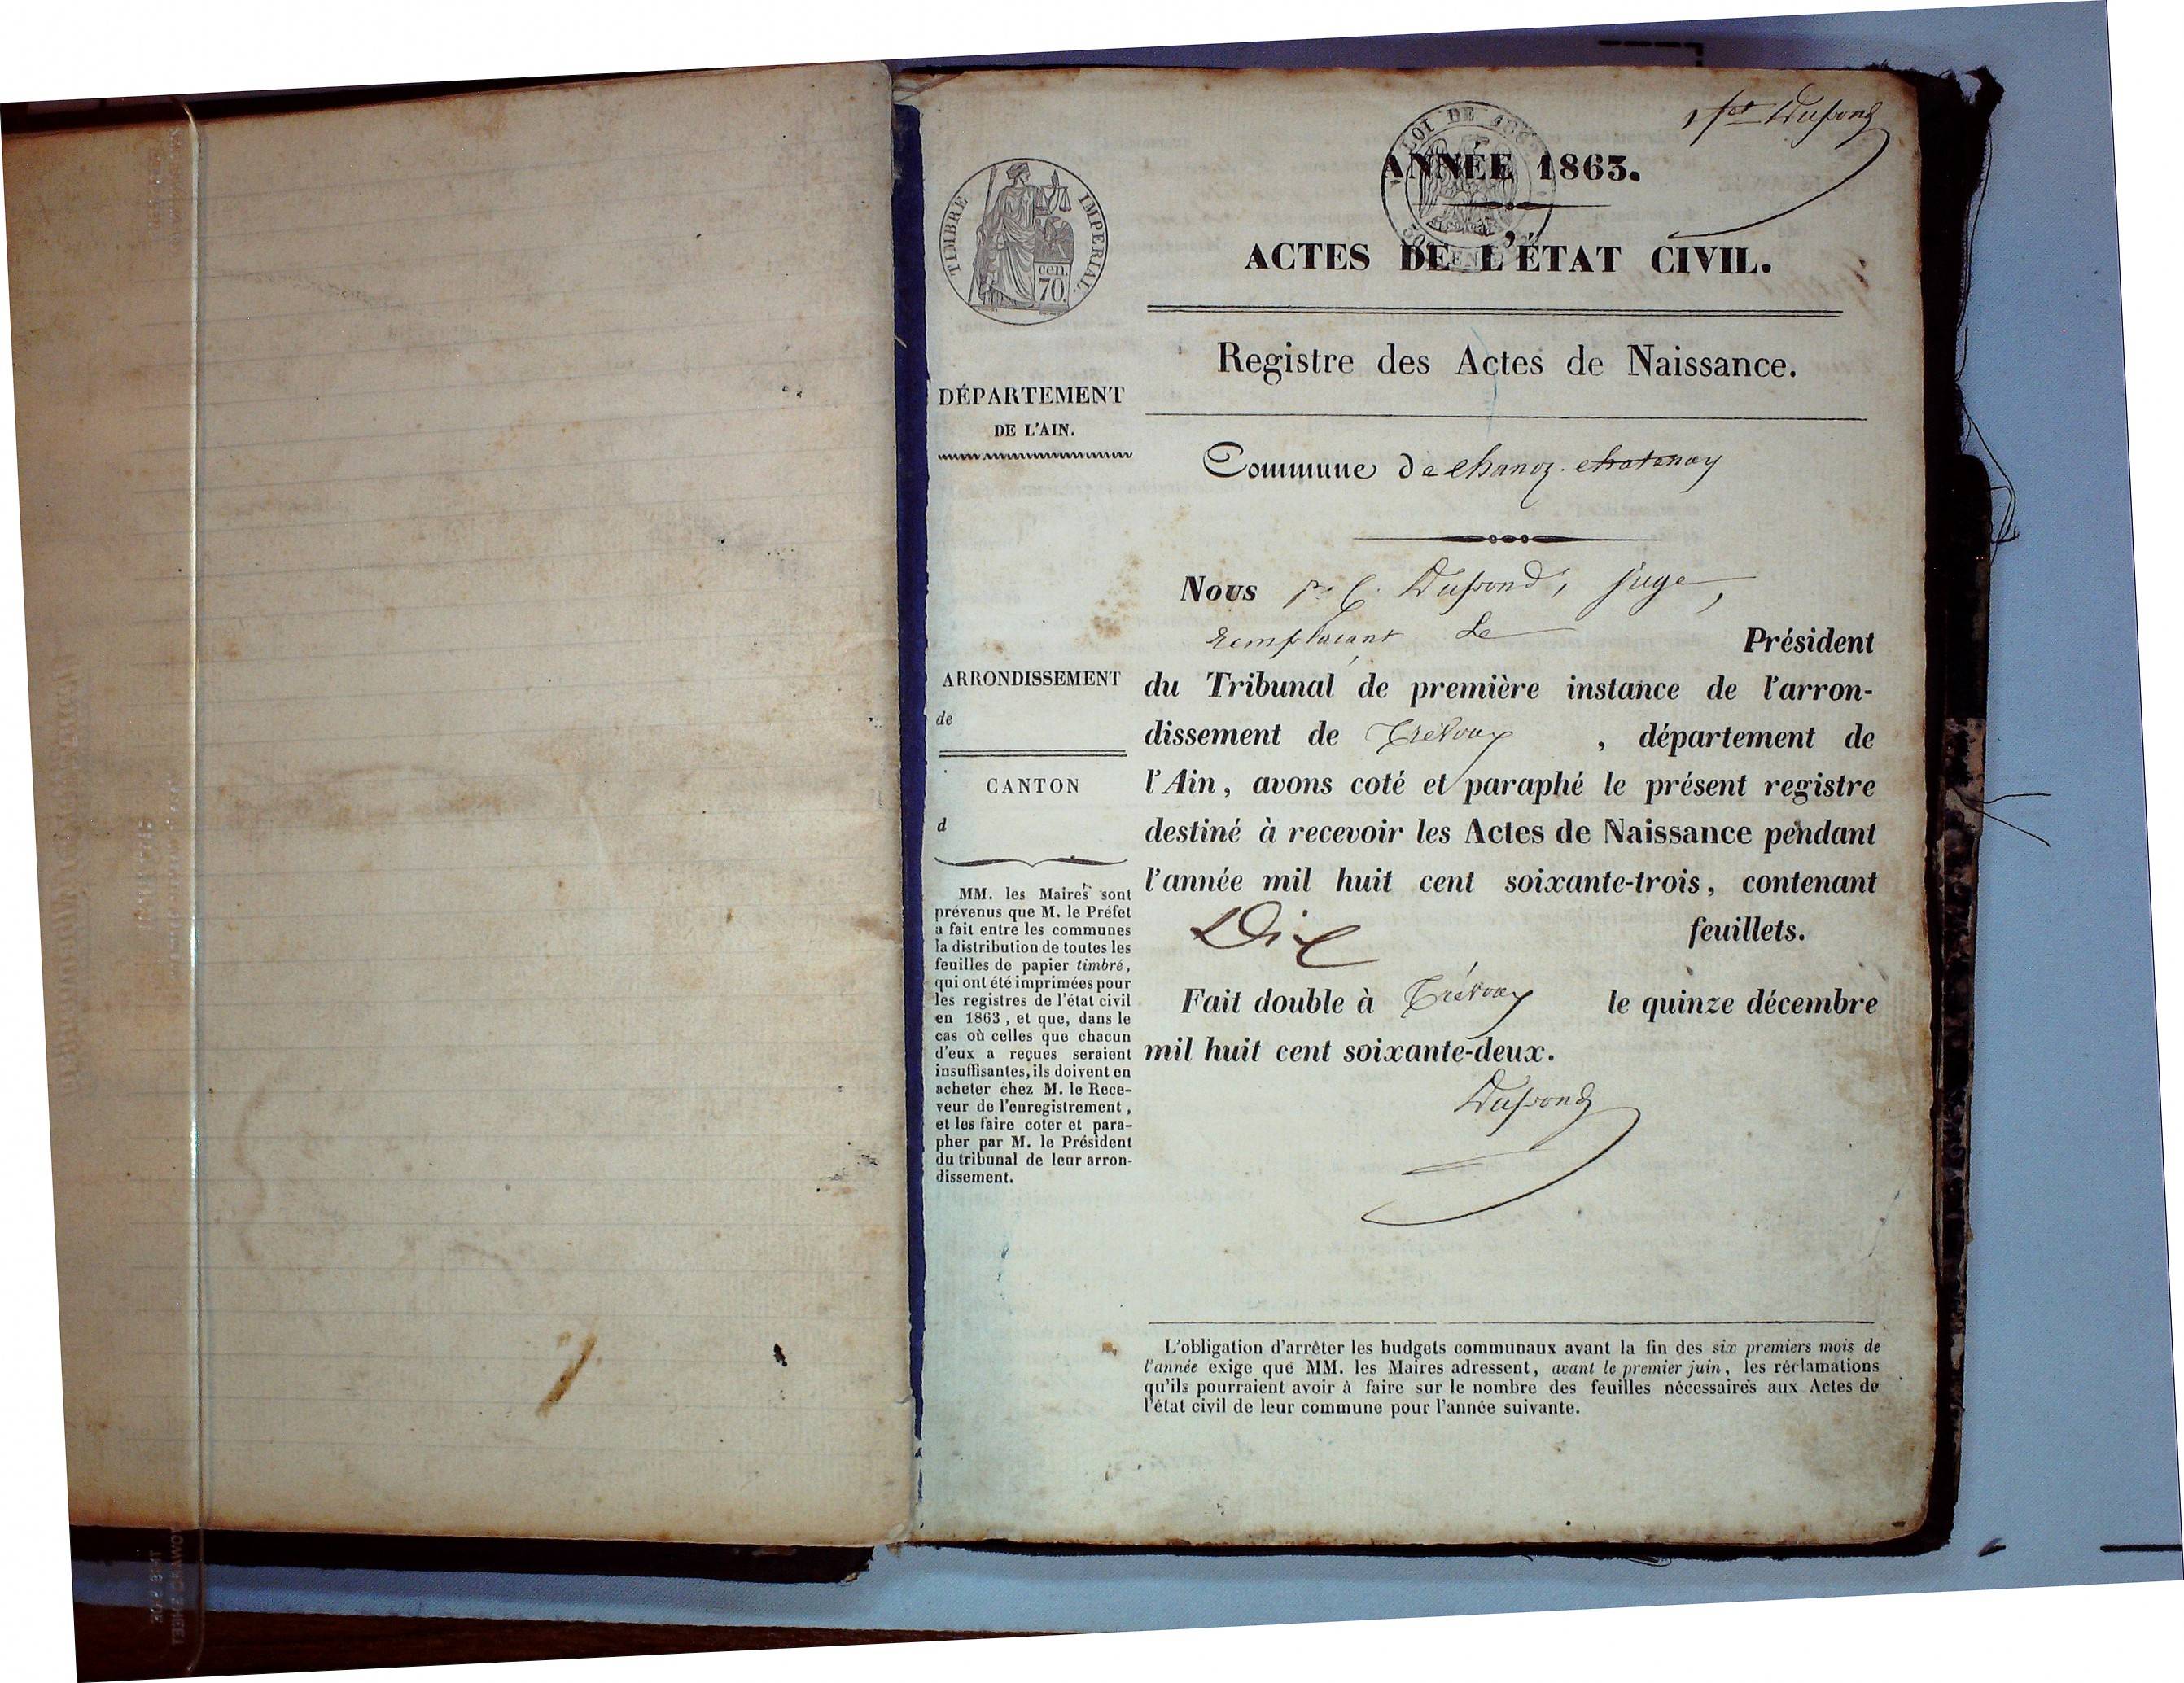 1 fet Dupond
TIMBRE IMPERIAL.
cen.
70.
LOI DE
ANNÉE 1863.
ACTES DE L'ÉTAT CIVIL.
Registre des Actes de Naissance.
DÉPARTEMENT
DE L'AIN.
Commune de Chanoz-Chatenay
Nous Dupond, juge,
remplaçant Le Président
du Tribunal de première instance de l'arron-
dissement de Trévoux, département de
l'Ain, avons coté et paraphé le présent registre
destiné à recevoir les Actes de Naissance pendant
l'année mil huit cent soixante-trois, contenant
Dix feuillets.
Fait double à Trévoux le quinze décembre
mil huit cent soixante-deux.
Dupond
ARRONDISSEMENT
de
CANTON
d
MM. les Maires sont
prévenus que M. le Préfet
a fait entre les communes
la distribution de toutes les
feuilles de papier timbré,
qui ont été imprimées pour
les registres de l'état civil
en 1863, et que, dans le
cas où celles que chacun
d'eux a reçues seraient
insuffisantes, ils doivent en
acheter chez M. le Rece-
veur de l'enregistrement,
et les faire coter et para-
pher par M. le Président
du tribunal de leur arron-
dissement.
L'obligation d'arrêter les budgets communaux avant la fin des six premiers mois de
l'année exige que MM. les Maires adressent, avant le premier juin, les réclamations
qu'ils pourraient avoir à faire sur le nombre des feuilles nécessaires aux Actes de
l'état civil de leur commune pour l'année suivante.